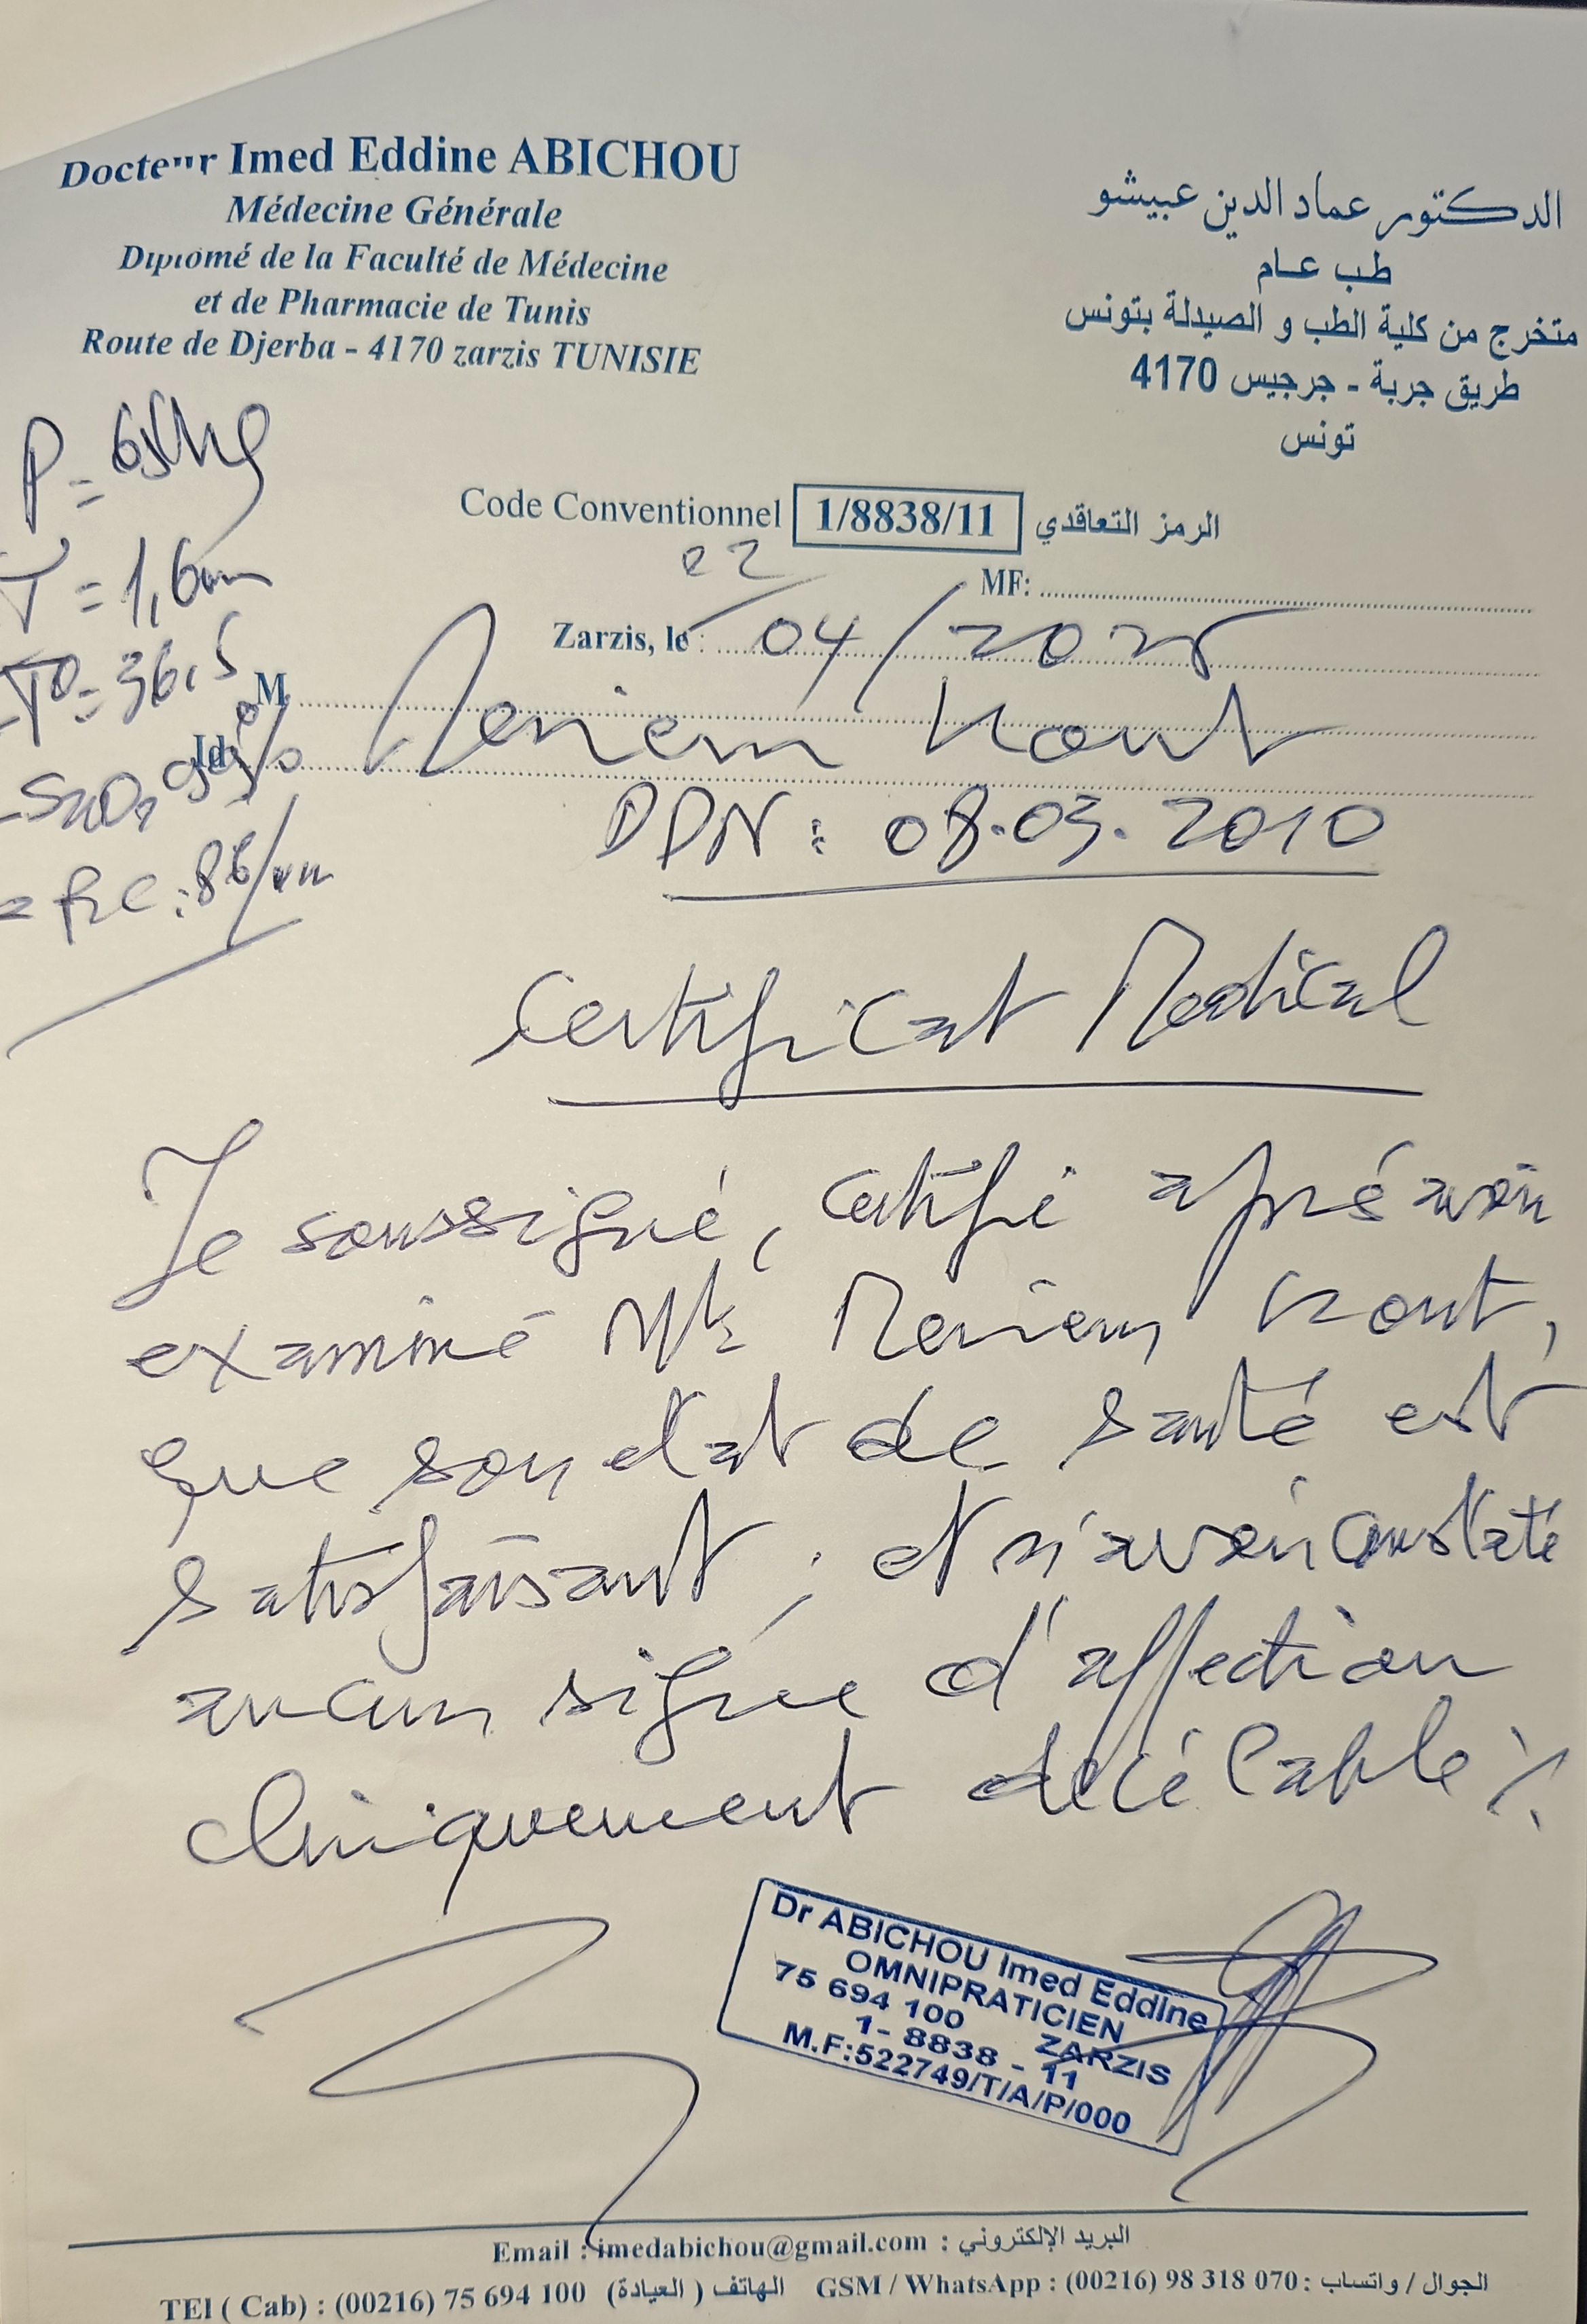 Docteur Imed Eddine ABICHOU
Médecine Générale
Diplomé de la Faculté de Médecine
et de Pharmacie de Tunis
Route de Djerba - 4170 zarzis TUNISIE
الدكتور عماد الدين عبيشو
طب عام
متخرج من كلية الطب و الصيدلة بتونس
طريق جربة - جرجيس 4170
تونس
P = 65kg
T = 1,6m
T° = 36,5
SaO2 99%
FC : 86/mn
Code Conventionnel 1/8838/11 الرمز التعاقدي
MF:
Zarzis, le : 22/04/2025
M Meriem
Id
DDN : 08.03.2010
Certificat Medical
Je soussigné, certifie après avoir
examiné Mlle Meriem
que son état de santé est
satisfaisant, et n'avoir constaté
aucun signe d'affection
cliniquement décélable ./.
Dr ABICHOU Imed Eddine
OMNIPRATICIEN
75 694 100 ZARZIS
1- 8838 - 11
M.F:522749/T/A/P/000
Email : imedabichou@gmail.com : البريد الإلكتروني
TEl ( Cab) : (00216) 75 694 100 الهاتف ( العيادة) GSM / WhatsApp : (00216) 98 318 070 : الجوال / واتساب